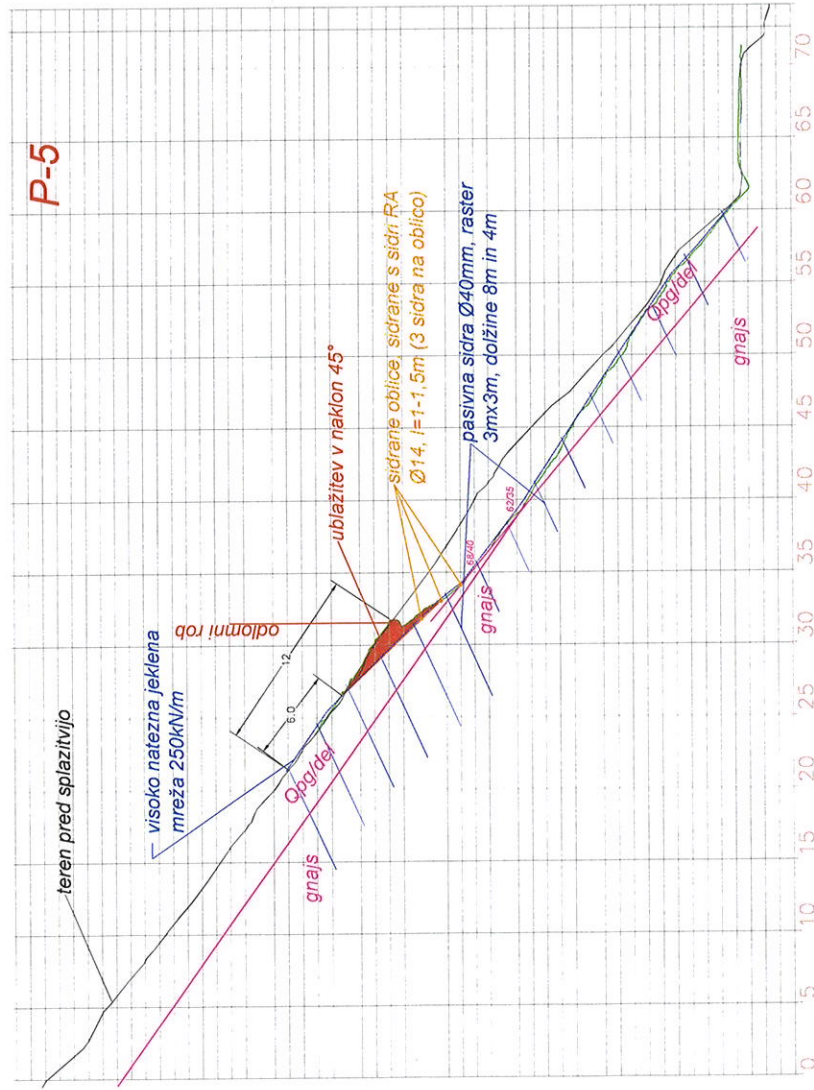 P-5
teren pred splazitvijo
visoko natezna jeklena
mreža 250kN/m
odlomni rob
ublažitev v naklon 45°
sidrane oblice, sidrane s sidri RA
Ø14, l=1-1,5m (3 sidra na oblico)
pasivna sidra Ø40mm, raster
3mx3m, dolžine 8m in 4m
12
6.0
Qpg/del
gnajs
68/40
gnajs
62/35
Qpg/del
gnajs
0
5
10
15
20
25
30
35
40
45
50
55
60
65
70